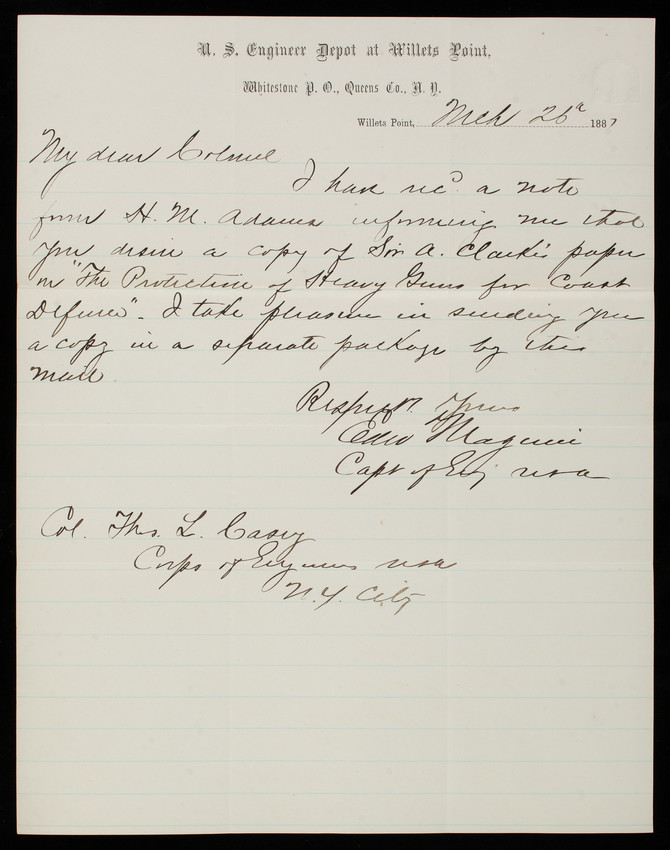 U. S. Engineer Depot at Willets Point,
Whitestone P. O., Queens Co., N. Y.
Willets Point, Mch 26th 1887
My dear Colonel
I have rec'd a note
from H. M. Adams informing me that
you desire a copy of Sir A. Clarke's paper
on "The Protection of Heavy Guns for Coast
Defence". I take pleasure in sending you
a copy in a separate package by this
mail
Respect. Yours
Edw Maguire
Capt of Eng USA
Col. Thos. L. Casey
Corps of Engineers USA
N.Y. City